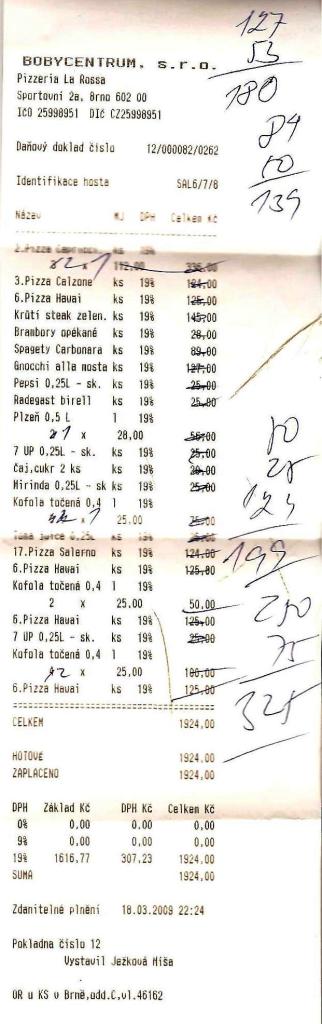 BOBYCENTRUM, s.r.o.
Pizzeria La Rossa
Sportovní 2a, Brno 602 00
IČO 25998951 DIČ CZ25998951
Daňový doklad číslo 12/000082/0262
Identifikace hosta SAL6/7/8
Název MJ DPH Celkem Kč
ks 19%
112,00 336,00
3.Pizza Calzone ks 19% 124,00
6.Pizza Havai ks 19% 125,00
Krůtí steak zelen. ks 19% 145,00
Brambory opékané ks 19% 28,00
Spagety Carbonara ks 19% 89,00
Gnocchi alla nosta ks 19% 127,00
Pepsi 0,25L - sk. ks 19% 25,00
Radegast birell ks 19% 25,00
Plzeň 0,5 L l 19%
x 28,00 56,00
7 UP 0,25L - sk. ks 19% 25,00
Čaj,cukr 2 ks ks 19% 20,00
Mirinda 0,25L - sk ks 19% 25,00
Kofola točená 0,4 l 19%
x 25,00 75,00
17.Pizza Salerno ks 19% 124,00
6.Pizza Havai ks 19% 125,00
Kofola točená 0,4 l 19%
2 x 25.00 50,00
6.Pizza Havai ks 19% 125,00
7 UP 0,25L - sk. ks 19% 25,00
Kofola točená 0,4 l 19%
x 25,00 100,00
6.Pizza Havai ks 19% 125,00
CELKEM 1924,00
HOTOVĚ 1924.00
ZAPLACENO 1924,00
DPH Základ Kč DPH Kč Celkem Kč
0% 0,00 0,00 0,00
9% 0,00 0,00 0,00
19% 1616,77 307,23 1924,00
SUMA 1924,00
Zdanitelné plnění 18.03.2009 22:24
Pokladna číslo 12
Vystavil Ježková Míša
OR u KS v Brně,odd.C,vl.46162
127
53
180
84
50
139
50
25
124
199
250
75
325